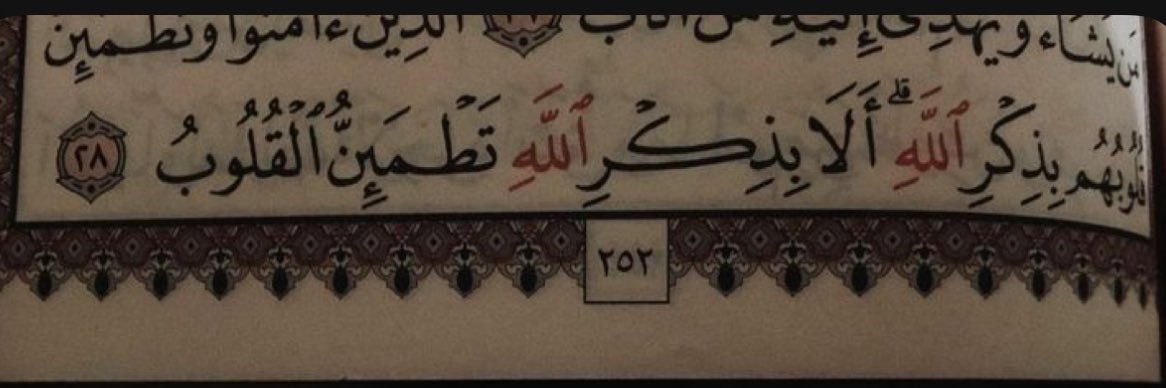 مَن يَشَآءُ وَيَهْدِىٓ إِلَيْهِ مَنْ أَنَابَ ٢٧ ٱلَّذِينَ ءَامَنُوا۟ وَتَطْمَئِنُّ
قُلُوبُهُم بِذِكْرِ ٱللَّهِ ۗ أَلَا بِذِكْرِ ٱللَّهِ تَطْمَئِنُّ ٱلْقُلُوبُ ٢٨
٢٥٢